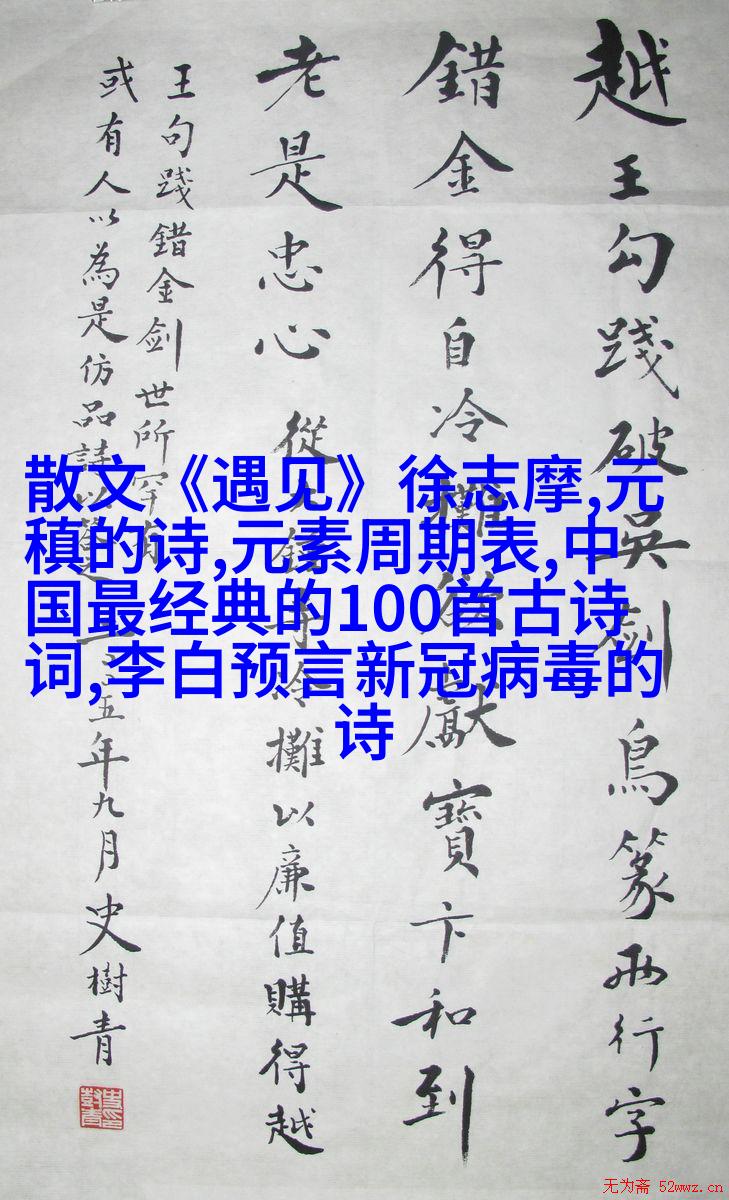 越王勾踐破吳劍鳥篆兩行字
錯金得自冷攤欲獻寶卞和到
老是忠心 從大鐘寺冷攤以廉值購得越
王句踐錯金剑世所罕有
或有人以為是仿品詩以之二〇〇五年九月史樹青
散文《遇见》徐志摩,元
稹的诗,元素周期表,中
国最经典的100首古诗
词,李白预言新冠病毒的
诗
无为斋 52wwz.cn